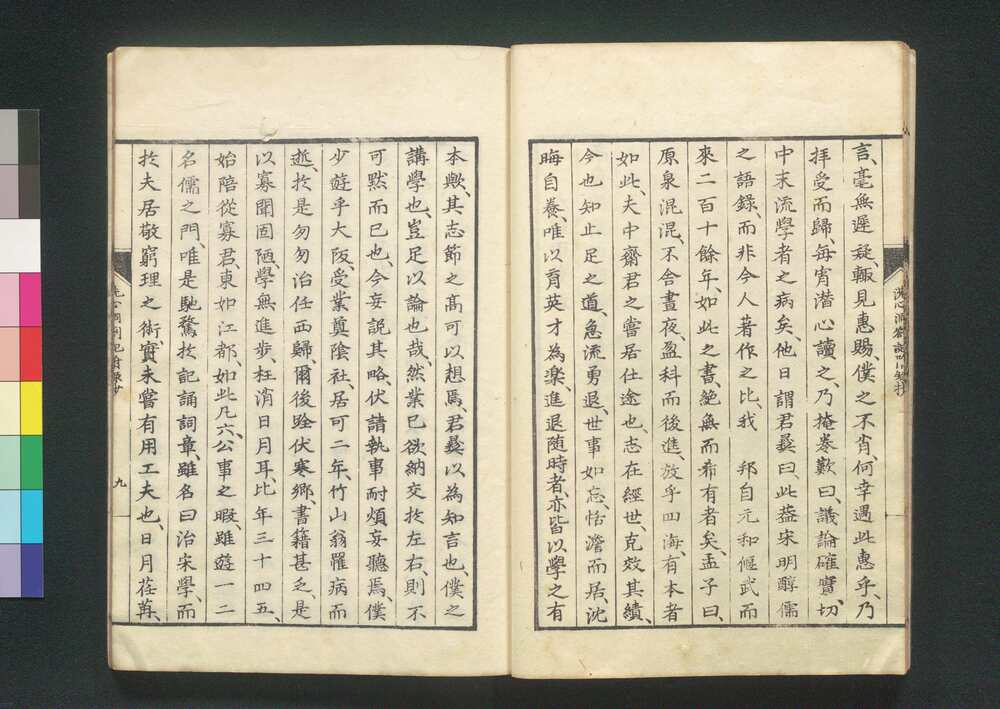 言、毫無遲疑、輙見惠賜、僕之不肖、何幸遇此惠乎、乃
拝受而歸、每宵潛心讀之、乃掩卷歎曰、議論確實、切
中末流學者之病矣、他日謂君彜曰此葢宋明醇儒
之語錄、而非今人著作之比、我 邦自元和偃武而
來二百十餘年、如此之書、絕無而希有者矣、孟子曰、
原泉混混、不舍晝夜、盈科而後進、放乎四海、有本者
如此、夫中齋君之嘗居仕途也、志在經世、克效其績、
今也知止足之道、急流勇退、世事如忘、恬澹而居、沈
晦自養、唯以育英才為樂、進退随時者、亦皆以學之有
本歟、其志節之高可以想焉、君彜以為知言也、僕之
講學也、豈足以論也哉、然業已欲納交扵左右、則不
可默而已也、今妄說其略、伏請執事耐煩妄聽焉、僕
少遊乎大阪、受業奠陰社、居可二年、竹山翁罹病而
逝、扵是勿勿治任西歸、爾後跧伏寒鄉、書籍甚乏、是
以寡聞固陋、學無進步、枉消日月耳、比年三十四五、
始陪從寡君、東如江都、如此凡六、公事之暇、雖遊一二
名儒之門、唯是馳騖扵記誦詞章、雖名曰治宋學、而
扵夫居敬窮理之術、實未嘗有用工夫也、日月荏苒、
九